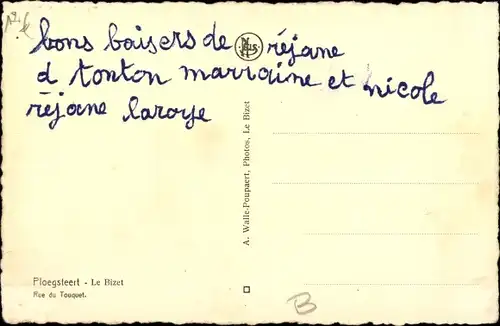 bons baisers de réjane
d tonton marraine et nicole
réjane laroye
A. Walle-Poupaert, Photos, Le Bizet
Ploegsteert - Le Bizet
Rue du Touquet.
B